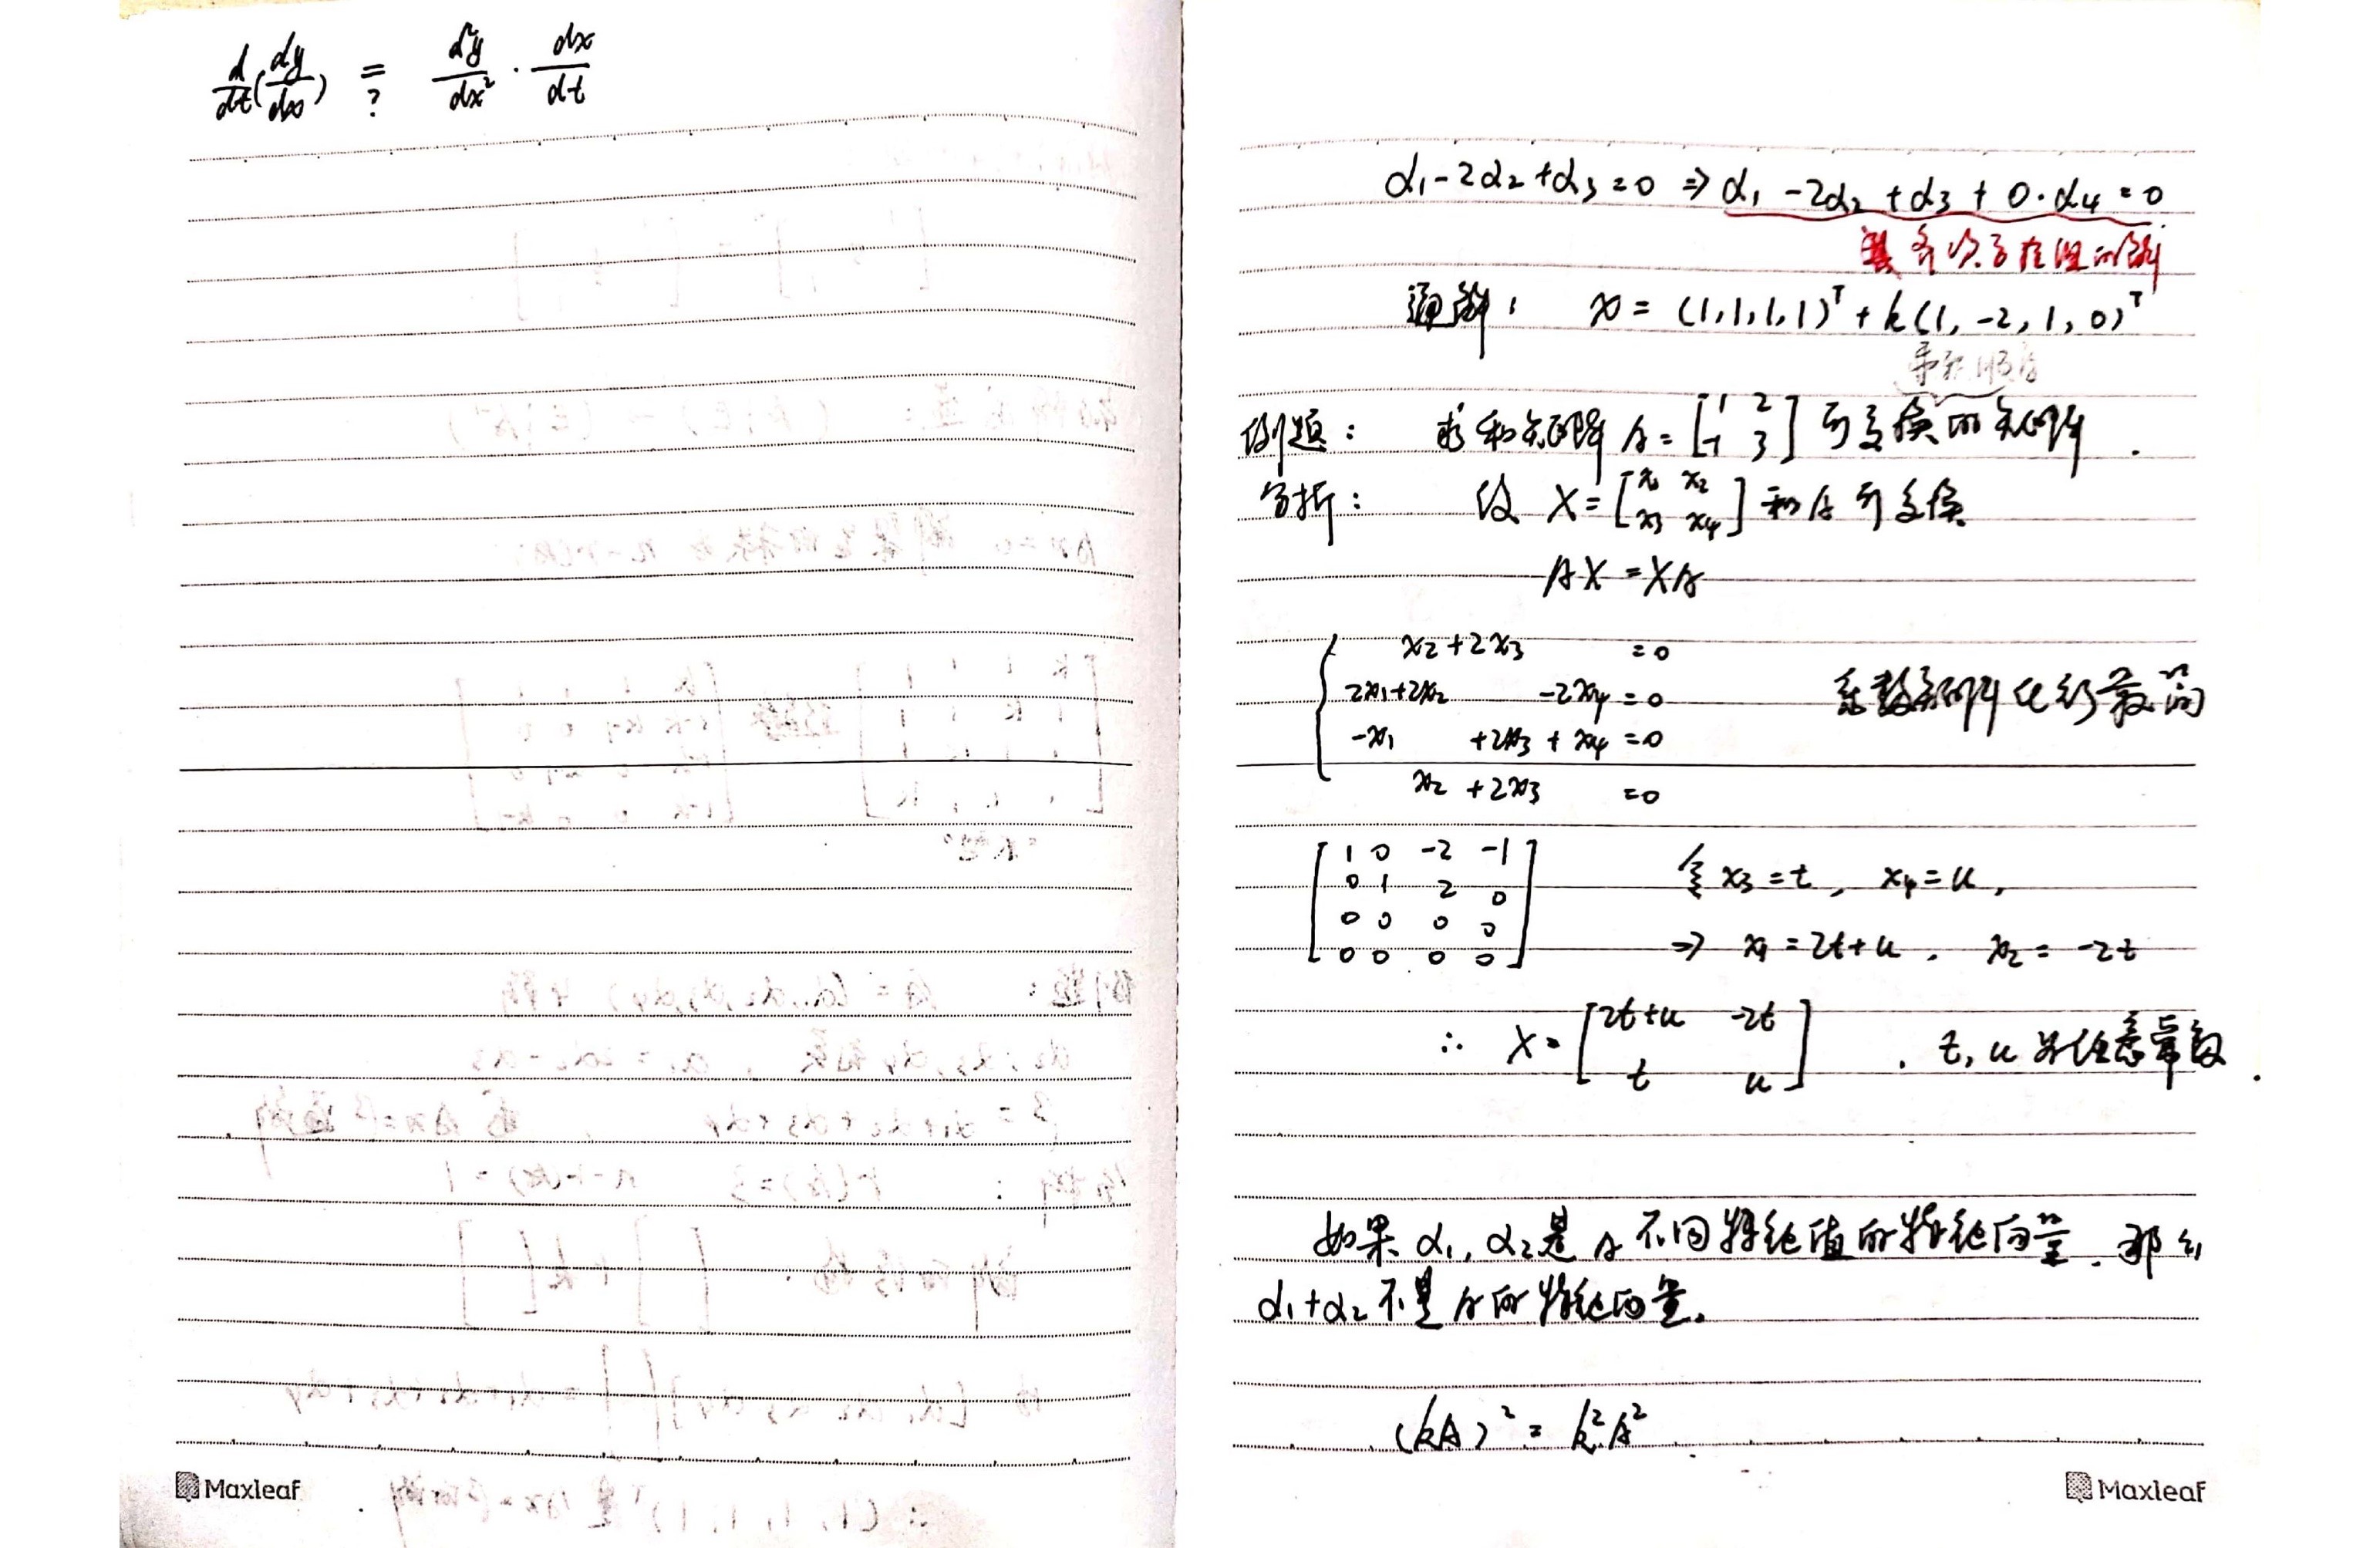 d/dt(dy/dx) =? d²y/dx² · dx/dt
Maxleaf
α₁-2α₂+α₃=0 ⇒ α₁-2α₂+α₃+0·α₄=0
通解: x=(1,1,1,1)ᵀ+k(1,-2,1,0)ᵀ
例题: 求和矩阵A=[1 2; -1 3]可交换的矩阵.
分析: 设X=[x₁ x₂; x₃ x₄]和A可交换
AX=XA
x₂+2x₃ =0
2x₁+2x₂ -2x₄=0 系数矩阵化行最简
-x₁ +2x₃+x₄=0
x₂+2x₃ =0
[1 0 -2 -1
0 1 2 0
0 0 0 0
0 0 0 0]
令x₃=t, x₄=u,
⇒ x₁=2t+u, x₂=-2t
∴ X=[2t+u -2t; t u]. t,u为任意常数.
如果α₁,α₂是A不同特征值的特征向量.那么
α₁+α₂不是A的特征向量.
(kA)²=k²A²
Maxleaf